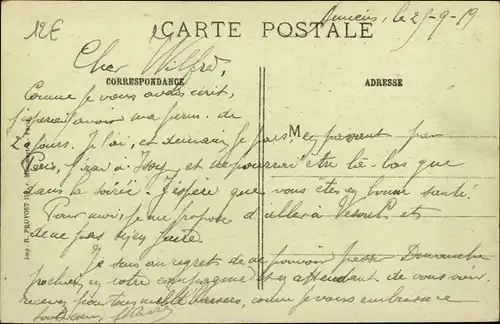 12€
CARTE POSTALE
Amiens, le 25-9-19
Cher Wilfred,
CORRESPONDANCE
ADRESSE
Comme je vous avais écrit,
j'espérais avoir ma perm. de
2 jours. Je l'ai, et demain je pars, en passant par
M
Paris, j'irai à Issy et ne pourrai être là-bas que
dans la soirée. J'espère que vous êtes en bonne santé.
Pour moi, je me propose d'aller à Vesoul et
de ne pas bien faire.
Je suis au regret de ne pouvoir passer Dimanche
prochain en votre compagnie et en attendant de vous voir
recevez pour tous mille baisers, comme je vous embrasse
Imp. R. PRUVOST